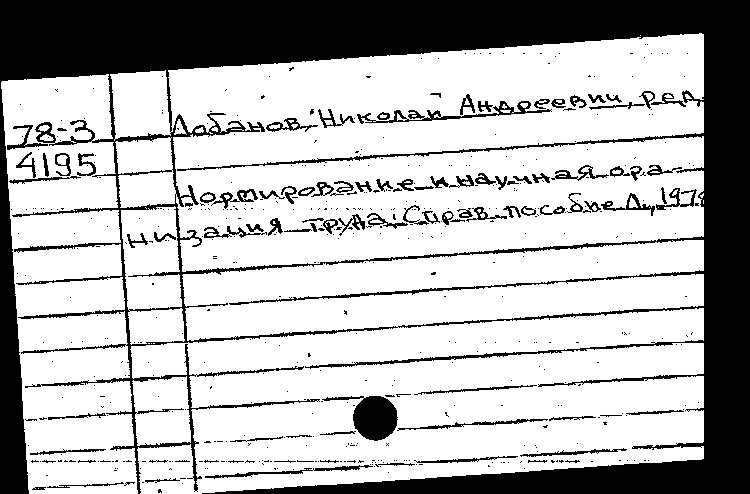 78-3
4195
Лобанов, Николай Андреевич, ред.
Нормирование и научная орга-
низация труда: Справ. пособие Л., 1978